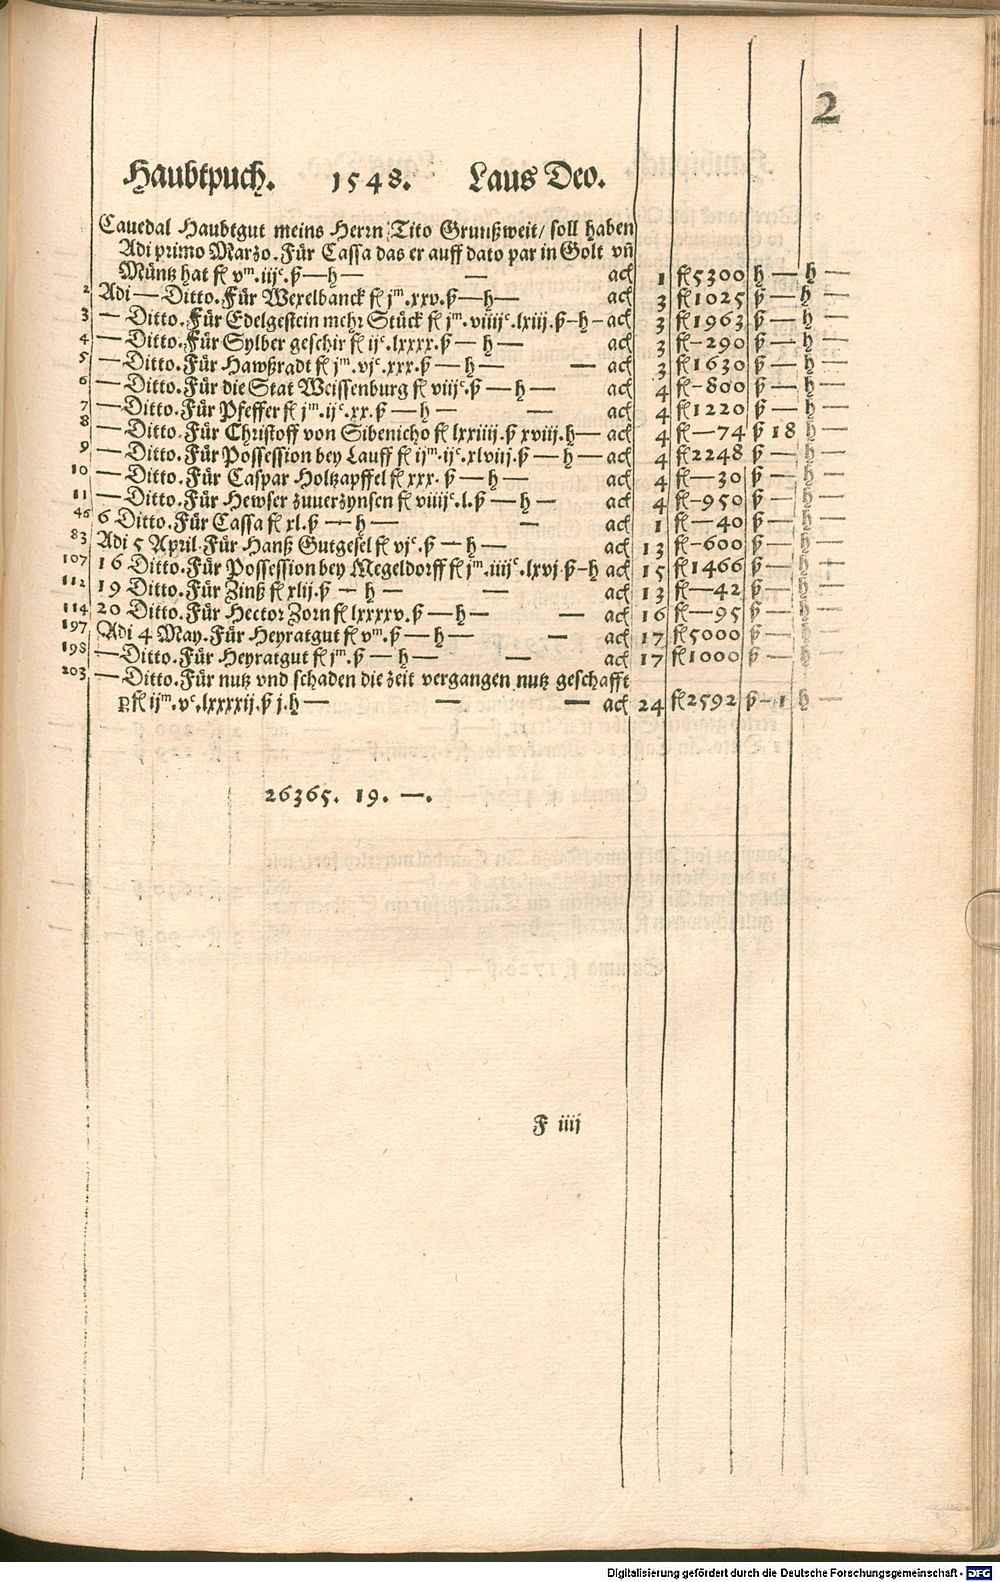 2
Haubtpuch. 1548. Laus Deo.
Cauedal Haubtgut meins Herrn Tito Grunßweit / soll haben
Adi primo Marzo. Für Cassa das er auff dato par in Golt vñ
Müntz hat fl vᵐ. iijᶜ. ß — h — — ach 1 fl 5300 h — h —
2 Adi — Ditto. Für Wexelbanck fl jᵐ. xxv. ß — h — ach 3 fl 1025 ß — h —
3 — Ditto. Für Edelgestein mehr Stück fl jᵐ. viiijᶜ. lxiij. ß — h — ach 3 fl 1963 ß — h —
4 — Ditto. Für Sylber geschir fl ijᶜ. lxxxx. ß — h — ach 3 fl — 290 ß — h —
5 — Ditto. Für Hawßradt fl jᵐ. vjᶜ. xxx. ß — h — — ach 3 fl 1630 ß — h —
6 — Ditto. Für die Stat Weissenburg fl viijᶜ. ß — h — ach 4 fl — 800 ß — h —
7 — Ditto. Für Pfeffer fl jᵐ. ijᶜ. xx. ß — h — — ach 4 fl 1220 ß — h —
8 — Ditto. Für Christoff von Sibenicho fl lxxiiij. ß xviij. h — ach 4 fl — 74 ß 18 h —
9 — Ditto. Für Possession bey Lauff fl ijᵐ. ijᶜ. xlviij. ß — h — ach 4 fl 2248 ß — h —
10 — Ditto. Für Caspar Holtzapffel fl xxx. ß — h — ach 4 fl — 30 ß — h —
11 — Ditto. Für Hewser zuuerzynsen fl viiijᶜ. l. ß — h — ach 4 fl — 950 ß — h —
46 6 Ditto. Für Cassa fl xl. ß — h — — ach 1 fl — 40 ß — h —
83 Adi 5 April. Für Hanß Gutgesel fl vjᶜ. ß — h — ach 13 fl — 600 ß — h —
107 16 Ditto. Für Possession bey Megeldorff fl jᵐ. iiijᶜ. lxvj. ß — h ach 15 fl 1466 ß — h —
112 19 Ditto. Für Zinß fl xlij. ß — h — — ach 13 fl — 42 ß — h —
114 20 Ditto. Für Hector Zorn fl lxxxxv. ß — h — — ach 16 fl — 95 ß — h —
197 Adi 4 May. Für Heyratgut fl vᵐ. ß — h — — ach 17 fl 5000 ß — h —
198 — Ditto. Für Heyratgut fl jᵐ. ß — h — — ach 17 fl 1000 ß — h —
203 — Ditto. Für nutz vnd schaden die zeit vergangen nutz geschafft
ꝑ fl ijᵐ. vᶜ. lxxxxij. ß j. h — — — ach 24 fl 2592 ß — 1 h —
26365. 19. —.
F iiij
Digitalisierung gefördert durch die Deutsche Forschungsgemeinschaft - DFG